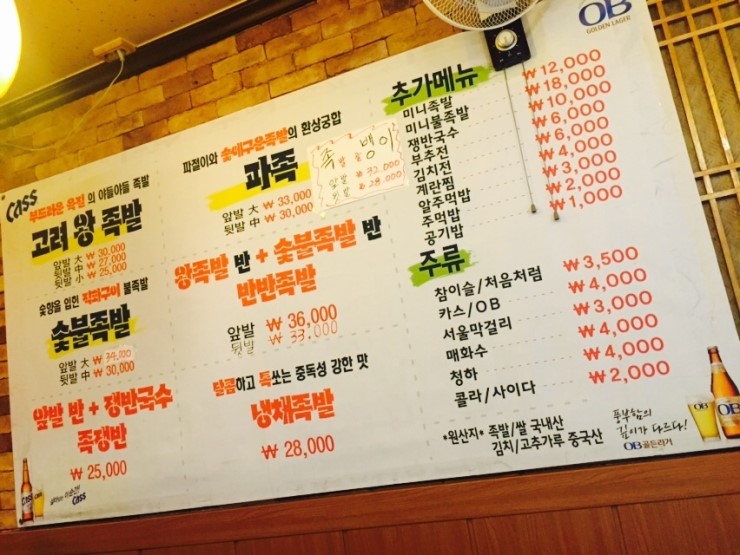 Cass
부드러운 육질의 야들야들 족발
고려 왕 족발
앞발 大 ₩ 30,000
뒷발 中 ₩ 27,000
뒷발 小 ₩ 25,000
숯향을 입힌 직화구이 불족발
숯불족발
앞발 大 ₩ 34,000
뒷발 中 ₩ 30,000
앞발 반 + 쟁반국수
족쟁반
₩ 25,000
Cass
파절이와 숯에구운족발의 환상궁합
파족
앞발 大 ₩ 33,000
뒷발 中 ₩ 30,000
족
냉이
앞발 ₩ 32,000
뒷발 ₩ 28,000
왕족발 반 + 숯불족발 반
반반족발
앞발 ₩ 36,000
뒷발 ₩ 33,000
달콤하고 톡쏘는 중독성 강한 맛
냉채족발
₩ 28,000
OB
GOLDEN LAGER
추가메뉴
미니족발 ₩ 12,000
미니불족발 ₩ 18,000
쟁반국수 ₩ 10,000
부추전 ₩ 6,000
김치전 ₩ 6,000
계란찜 ₩ 4,000
알주먹밥 ₩ 3,000
주먹밥 ₩ 2,000
공기밥 ₩ 1,000
주류
참이슬/처음처럼 ₩ 3,500
카스/OB ₩ 4,000
서울막걸리 ₩ 3,000
매화수 ₩ 4,000
청하 ₩ 4,000
콜라/사이다 ₩ 2,000
*원산지* 족발/쌀 국내산
김치/고추가루 중국산
풍부함의
깊이가 다르다!
OB 골든라거
OB
OB